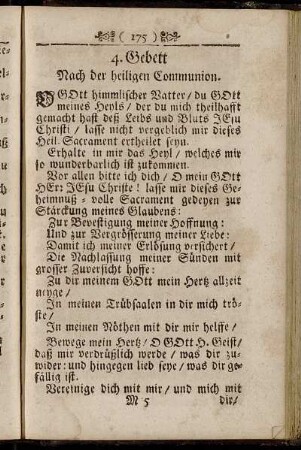 ( 175 )
4. Gebett
Nach der heiligen Communion.
O GOtt himmlischer Vatter/ du GOtt
meines Heyls/ der du mich theilhafft
gemacht hast deß Leibs und Bluts JEsu
Christi/ lasse nicht vergeblich mir dieses
Heil. Sacrament ertheilet seyn.
Erhalte in mir das Heyl/ welches mir
so wunderbarlich ist zukommen.
Vor allen bitte ich dich/ O mein GOtt
HErr JEsu Christe! lasse mir dieses Ge-
heimnuß-volle Sacrament gedeyen zur
Stärckung meines Glaubens:
Zur Bevestigung meiner Hoffnung:
Und zur Vergrösserung meiner Liebe:
Damit ich meiner Erlösung versichert/
Die Nachlassung meiner Sünden mit
grosser Zuversicht hoffe:
Zu dir meinem GOtt mein Hertz allzeit
neyge/
In meinen Trübsaalen in dir mich trö-
ste/
In meinen Nöthen mit dir mir helffe/
Bewege mein Hertz/ O GOtt H. Geist/
daß mir verdrüßlich werde/ was dir zu-
wider: und hingegen lieb seye/ was dir ge-
fällig ist.
Vereinige dich mit mir/ und mich mit
M 5 dir/